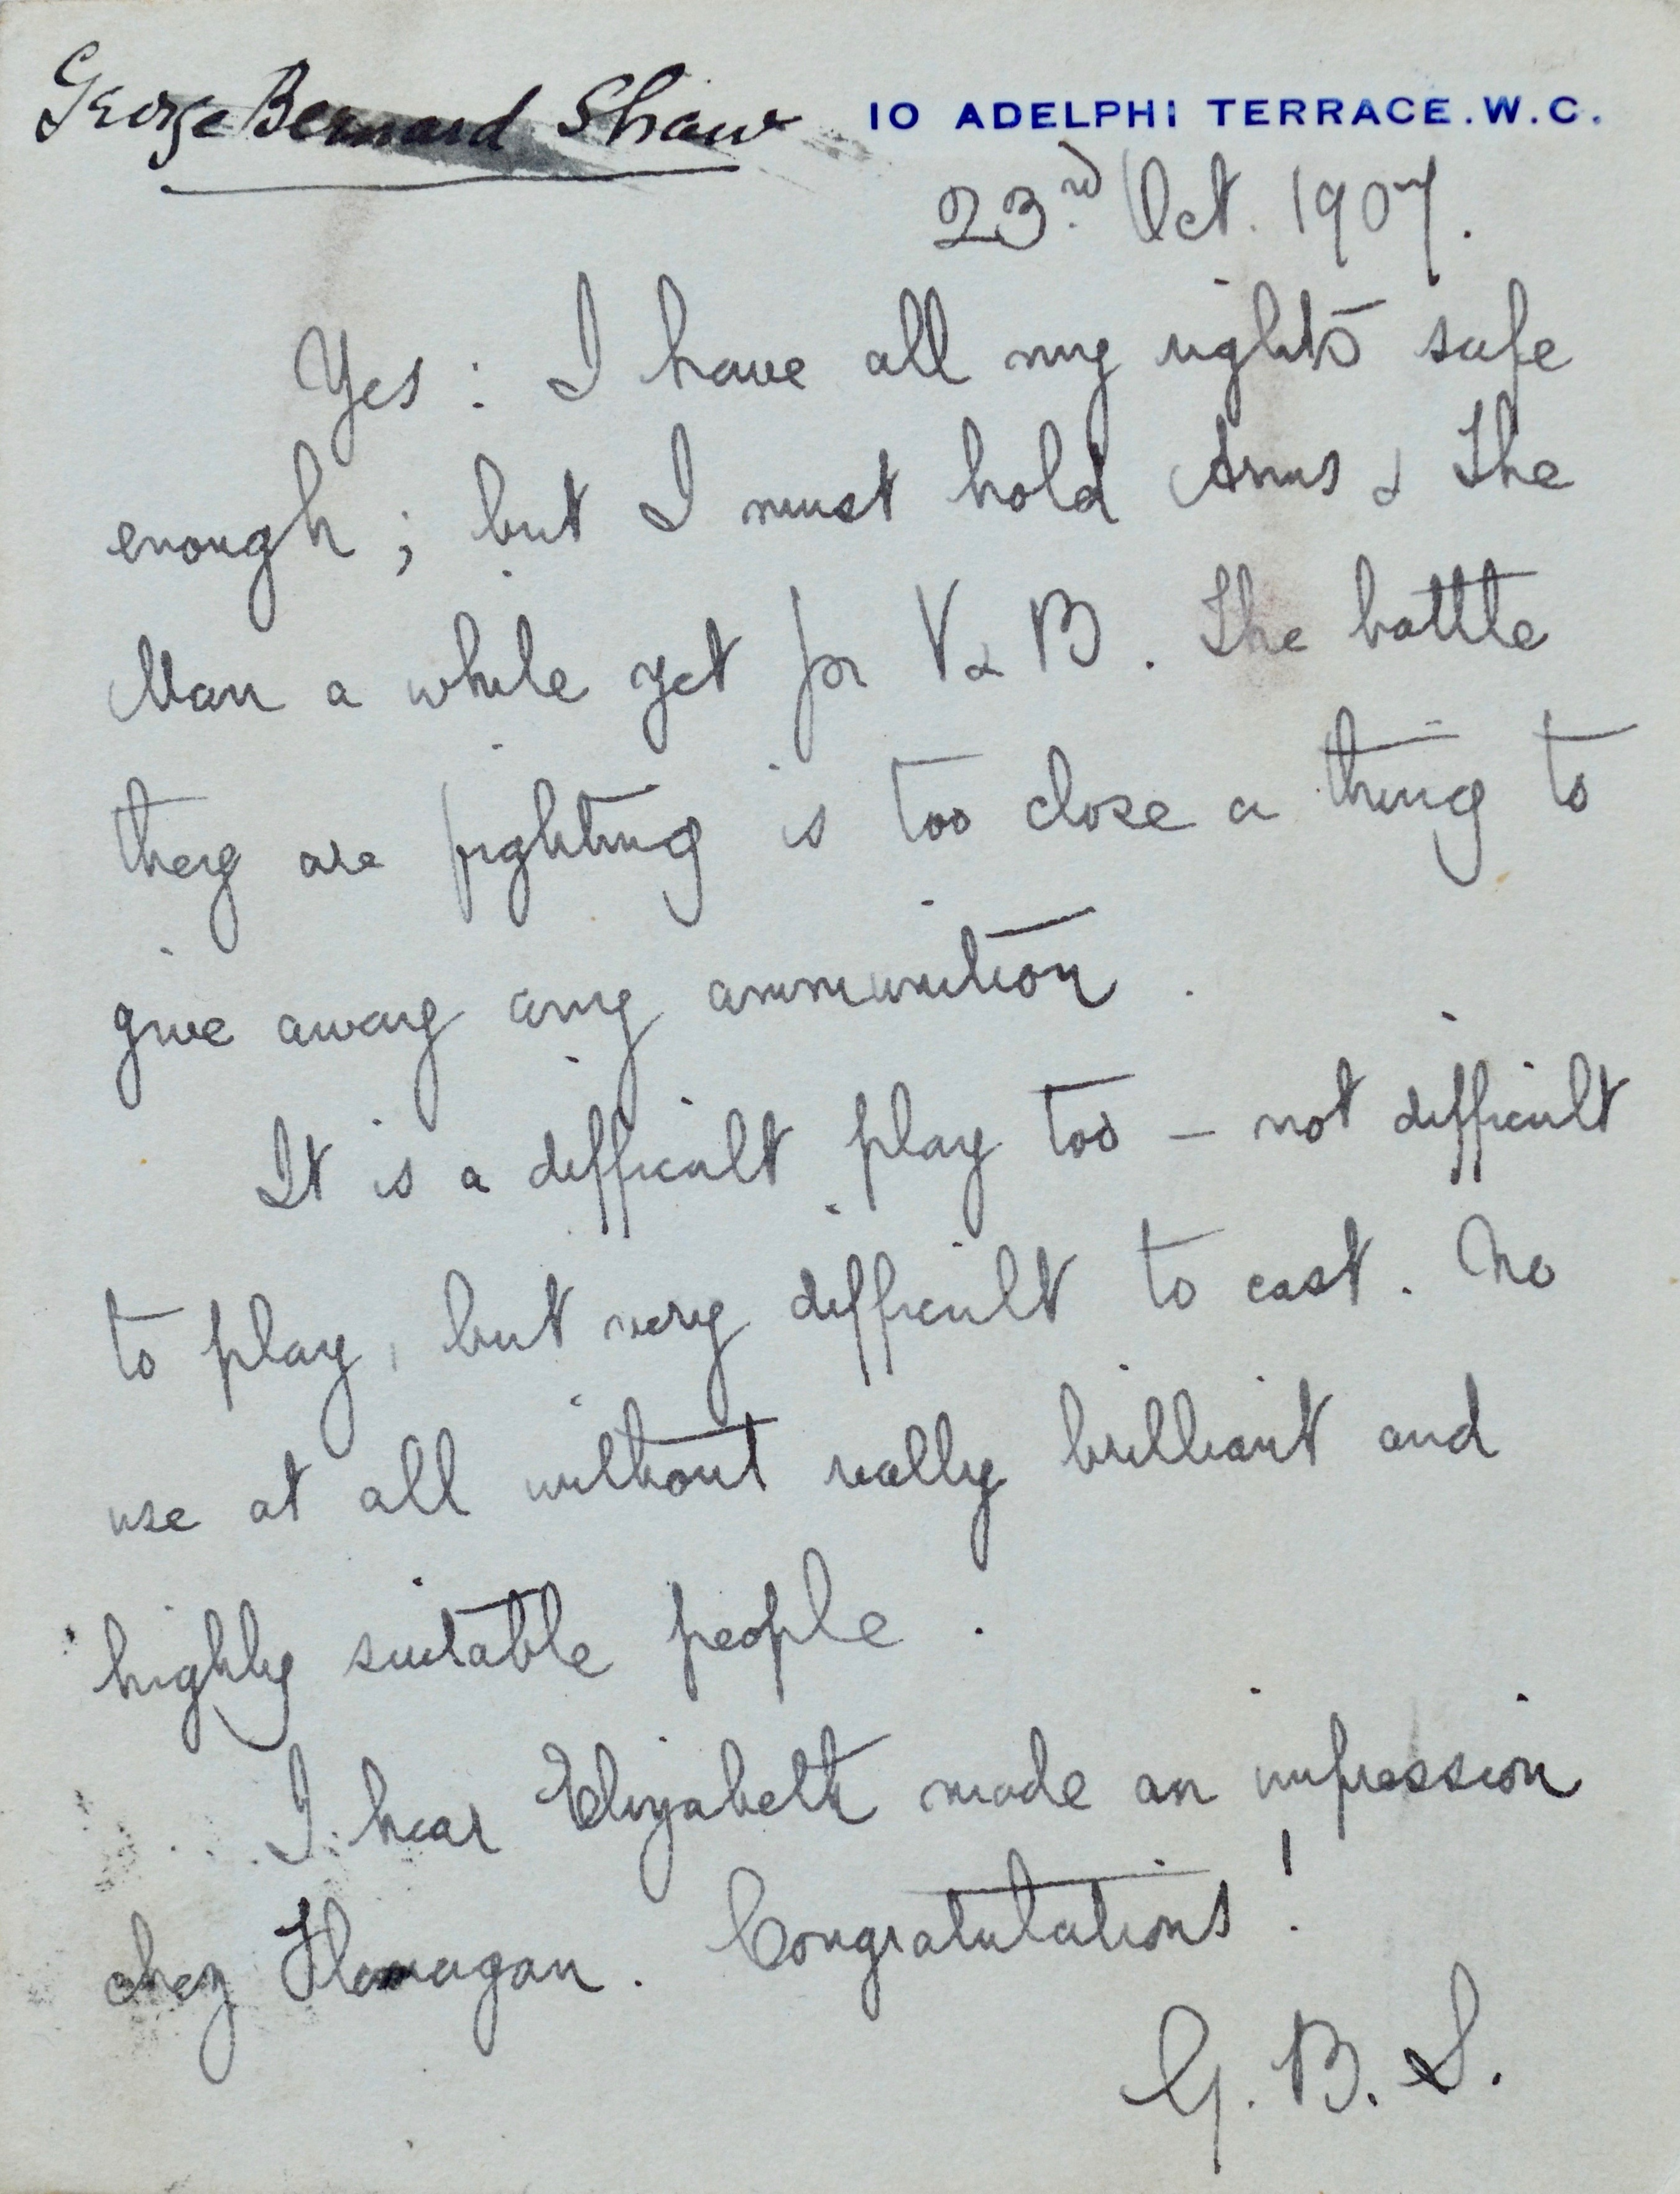 George Bernard Shaw 10 ADELPHI TERRACE. W.C.
23rd Oct. 1907.
Yes: I have all my rights safe
enough; but I must hold Arms & The
Man a while yet for V & B. The battle
they are fighting is too close a thing to
give away any ammunition.
It is a difficult play too — not difficult
to play, but very difficult to cast. No
use at all without really brilliant and
highly suitable people.
I hear Elizabeth made an impression
chez Flanagan. Congratulations!
G. B. S.